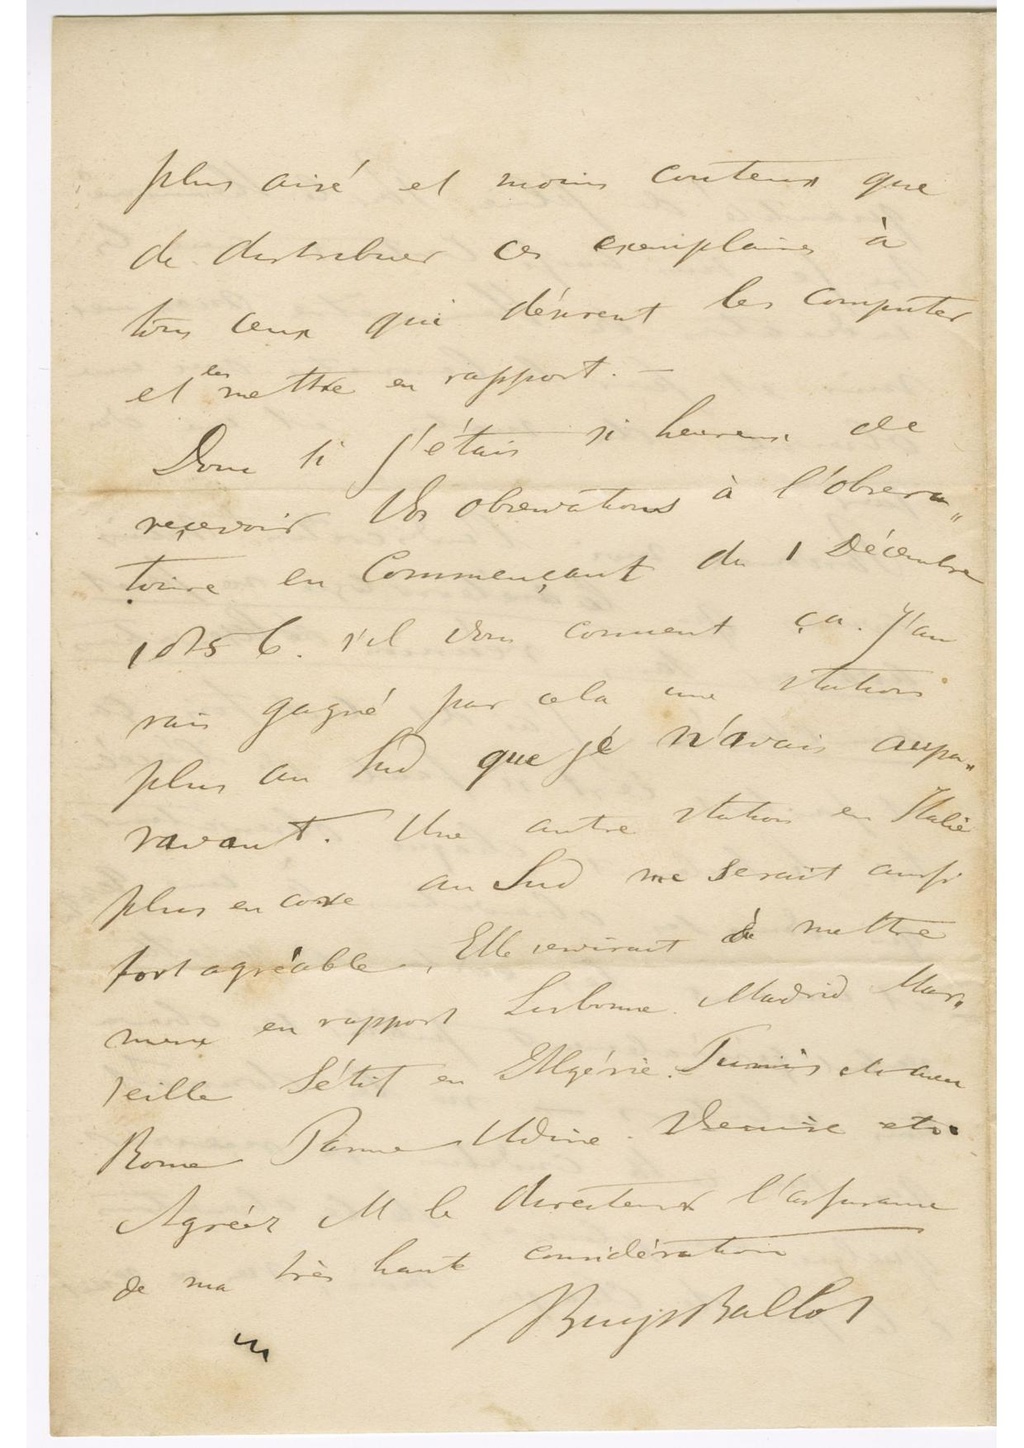 plus aisé et moins couteux que
de distribuer ces exemplaires à
tous ceux qui désirent les computer
et les mettre en rapport. —
Donc si j'étais si heureux de
reçevoir Vos observations à l'observa„
toire en Commençant du 1 Décembre
1856. s'il vous convient ça. J'au
rais gagné par cela une station
plus au Sud que je n'avais aupa„
ravant. Une autre station en Italie
plus encore au Sud me serait aussi
fort agréable, Elle servirait à mettre
mieux en rapport Lisbonne. Madrid Mar„
seille Sétif en Algérie. Tunis
Rome Parme Udine. Venise etc.
Agréez M le directeur l'assurance
de ma très haute considération
BuysBallot